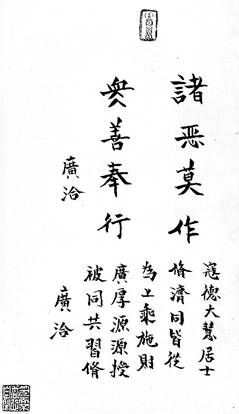 諸恶莫作
衆善奉行
廣洽
寇德大慧居士
脩濟同皆從
為上乘施財
廣厚源源授
被同共習脩
廣洽